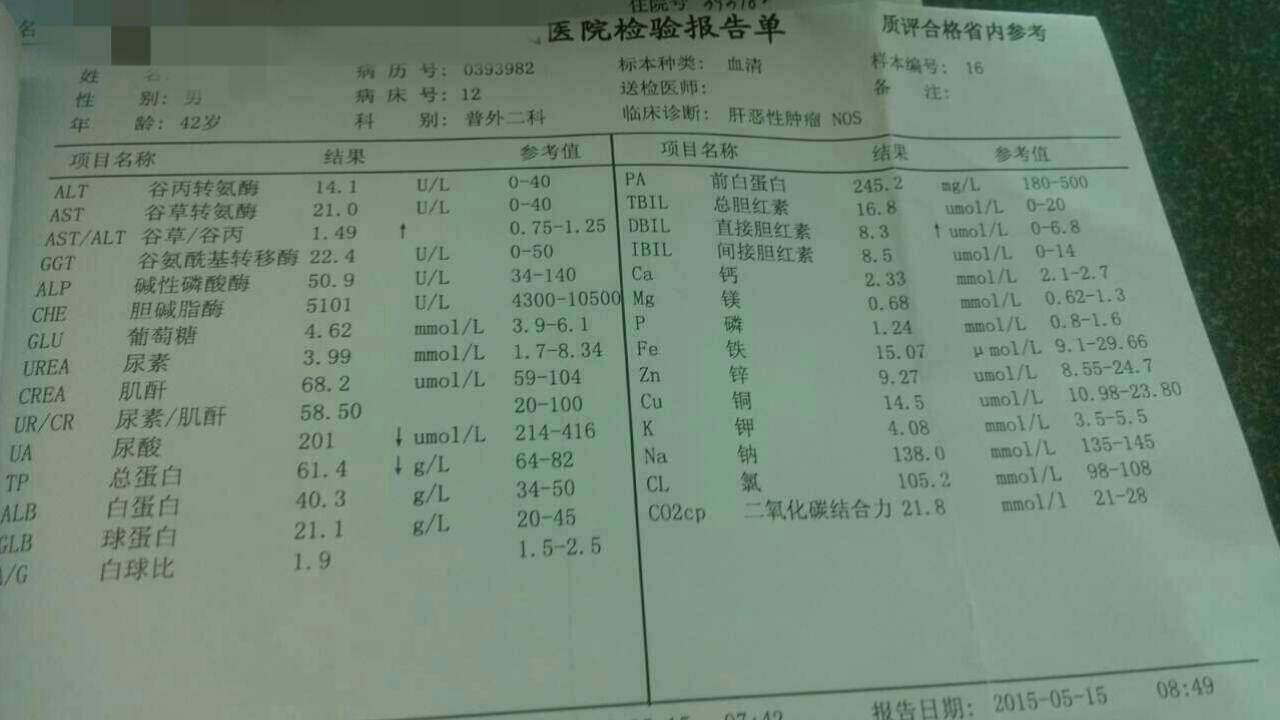 住院号
名
医院检验报告单
质评合格省内参考
姓 名
病 历 号: 0393982
标本种类: 血清
样本编号: 16
性 别: 男
病 床 号: 12
送检医师:
备 注:
年 龄: 42岁
科 别: 普外二科
临床诊断: 肝恶性肿瘤 NOS
项目名称 结果 参考值
ALT 谷丙转氨酶 14.1 U/L 0-40
AST 谷草转氨酶 21.0 U/L 0-40
AST/ALT 谷草/谷丙 1.49 ↑ 0.75-1.25
GGT 谷氨酰基转移酶 22.4 U/L 0-50
ALP 碱性磷酸酶 50.9 U/L 34-140
CHE 胆碱脂酶 5101 U/L 4300-10500
GLU 葡萄糖 4.62 mmol/L 3.9-6.1
UREA 尿素 3.99 mmol/L 1.7-8.34
CREA 肌酐 68.2 umol/L 59-104
UR/CR 尿素/肌酐 58.50 20-100
UA 尿酸 201 ↓ umol/L 214-416
TP 总蛋白 61.4 ↓ g/L 64-82
ALB 白蛋白 40.3 g/L 34-50
GLB 球蛋白 21.1 g/L 20-45
A/G 白球比 1.9 1.5-2.5
项目名称 结果 参考值
PA 前白蛋白 245.2 mg/L 180-500
TBIL 总胆红素 16.8 umol/L 0-20
DBIL 直接胆红素 8.3 ↑ umol/L 0-6.8
IBIL 间接胆红素 8.5 umol/L 0-14
Ca 钙 2.33 mmol/L 2.1-2.7
Mg 镁 0.68 mmol/L 0.62-1.3
P 磷 1.24 mmol/L 0.8-1.6
Fe 铁 15.07 μmol/L 9.1-29.66
Zn 锌 9.27 umol/L 8.55-24.7
Cu 铜 14.5 umol/L 10.98-23.80
K 钾 4.08 mmol/L 3.5-5.5
Na 钠 138.0 mmol/L 135-145
CL 氯 105.2 mmol/L 98-108
CO2cp 二氧化碳结合力 21.8 mmol/l 21-28
报告日期: 2015-05-15 08:49